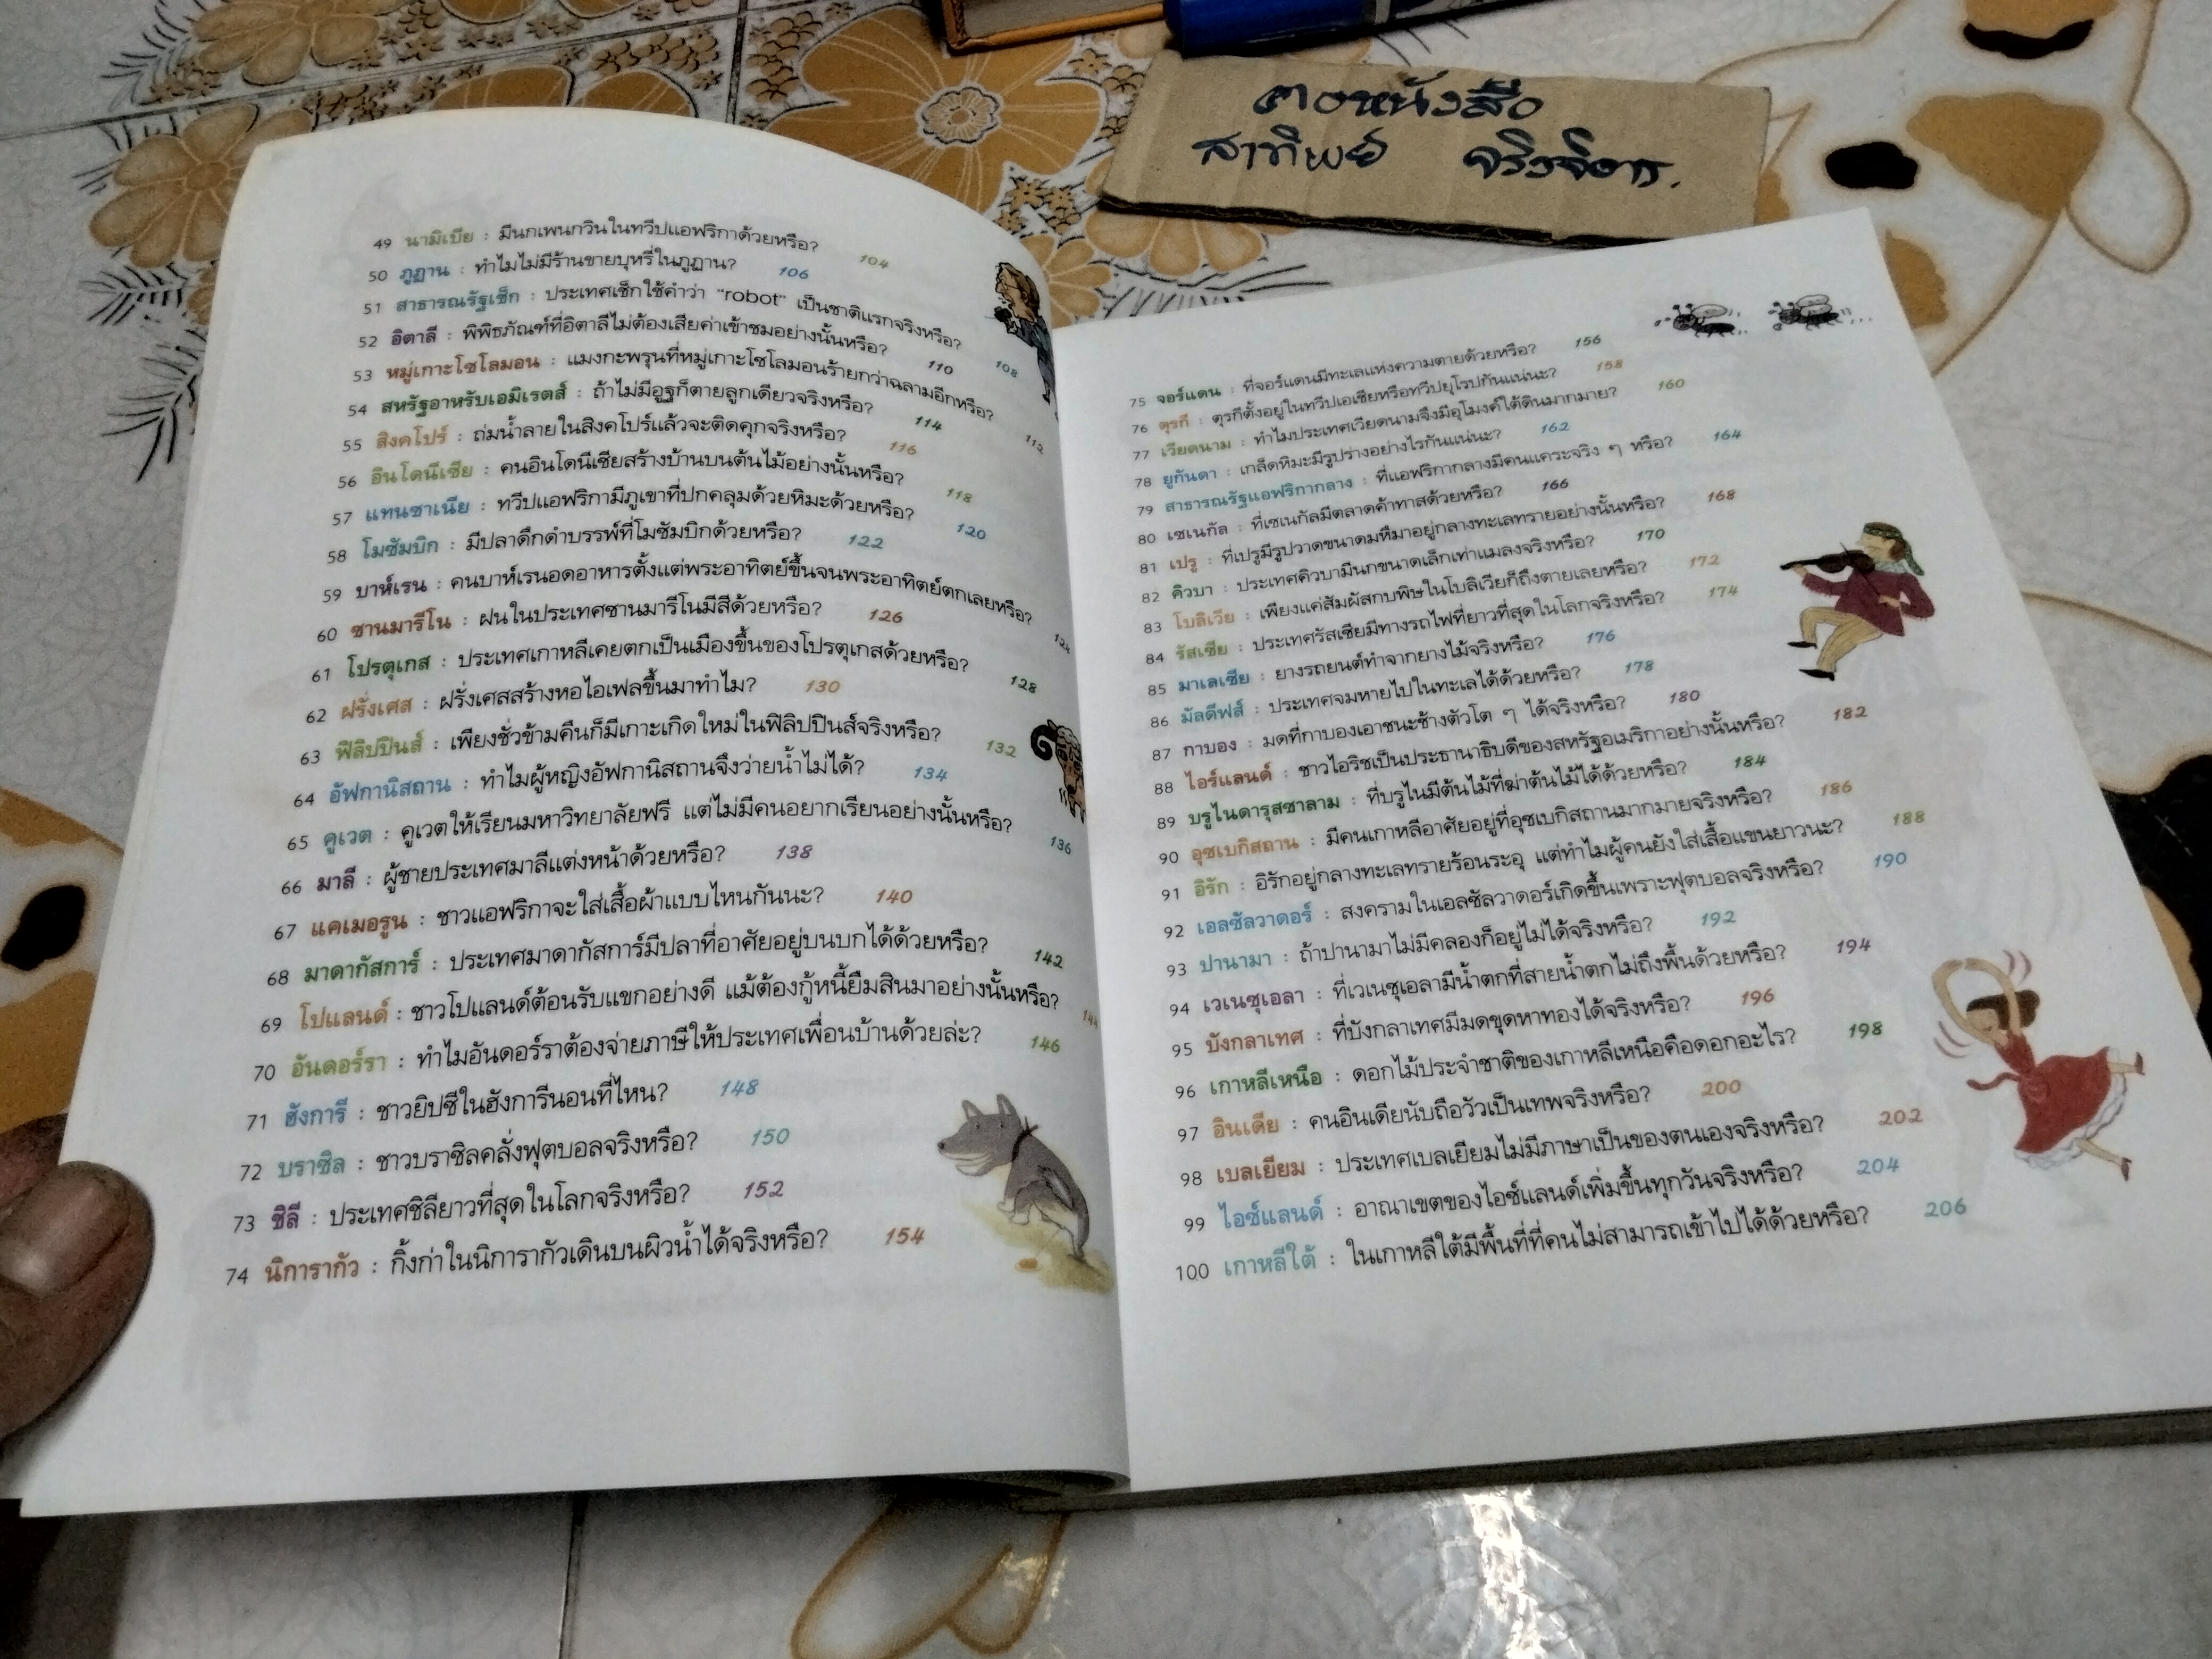 สาทิพย์ จริงจิตร.
49 นามิเบีย : มีนกเพนกวินในทวีปแอฟริกาด้วยหรือ? 104
50 ภูฏาน : ทำไมไม่มีร้านขายบุหรี่ในภูฏาน? 106
51 สาธารณรัฐเช็ก : ประเทศเช็กใช้คำว่า “robot” เป็นชาติแรกจริงหรือ? 108
52 อิตาลี : พิพิธภัณฑ์ที่อิตาลีไม่ต้องเสียค่าเข้าชมอย่างนั้นหรือ? 110
53 หมู่เกาะโซโลมอน : แมงกะพรุนที่หมู่เกาะโซโลมอนร้ายกว่าฉลามอีกหรือ? 112
54 สหรัฐอาหรับเอมิเรตส์ : ถ้าไม่มีอูฐก็ตายลูกเดียวจริงหรือ? 114
55 สิงคโปร์ : ถ่มน้ำลายในสิงคโปร์แล้วจะติดคุกจริงหรือ? 116
56 อินโดนีเซีย : คนอินโดนีเซียสร้างบ้านบนต้นไม้อย่างนั้นหรือ? 118
57 แทนซาเนีย : ทวีปแอฟริกามีภูเขาที่ปกคลุมด้วยหิมะด้วยหรือ? 120
58 โมซัมบิก : มีปลาดึกดำบรรพ์ที่โมซัมบิกด้วยหรือ? 122
59 บาห์เรน : คนบาห์เรนอดอาหารตั้งแต่พระอาทิตย์ขึ้นจนพระอาทิตย์ตกเลยหรือ? 124
60 ซานมารีโน : ฝนในประเทศซานมารีโนมีสีด้วยหรือ? 126
61 โปรตุเกส : ประเทศเกาหลีเคยตกเป็นเมืองขึ้นของโปรตุเกสด้วยหรือ? 128
62 ฝรั่งเศส : ฝรั่งเศสสร้างหอไอเฟลขึ้นมาทำไม? 130
63 ฟิลิปปินส์ : เพียงชั่วข้ามคืนก็มีเกาะเกิดใหม่ในฟิลิปปินส์จริงหรือ? 132
64 อัฟกานิสถาน : ทำไมผู้หญิงอัฟกานิสถานจึงว่ายน้ำไม่ได้? 134
65 คูเวต : คูเวตให้เรียนมหาวิทยาลัยฟรี แต่ไม่มีคนอยากเรียนอย่างนั้นหรือ? 136
66 มาลี : ผู้ชายประเทศมาลีแต่งหน้าด้วยหรือ? 138
67 แคเมอรูน : ชาวแอฟริกาจะใส่เสื้อผ้าแบบไหนกันนะ? 140
68 มาดากัสการ์ : ประเทศมาดากัสการ์มีปลาที่อาศัยอยู่บนบกได้ด้วยหรือ? 142
69 โปแลนด์ : ชาวโปแลนด์ต้อนรับแขกอย่างดี แม้ต้องกู้หนี้ยืมสินมาอย่างนั้นหรือ? 144
70 อันดอร์รา : ทำไมอันดอร์ราต้องจ่ายภาษีให้ประเทศเพื่อนบ้านด้วยล่ะ? 146
71 ฮังการี : ชาวยิปซีในฮังการีนอนที่ไหน? 148
72 บราซิล : ชาวบราซิลคลั่งฟุตบอลจริงหรือ? 150
73 ชิลี : ประเทศชิลียาวที่สุดในโลกจริงหรือ? 152
74 นิการากัว : กิ้งก่าในนิการากัวเดินบนผิวน้ำได้จริงหรือ? 154
75 จอร์แดน : ที่จอร์แดนมีทะเลแห่งความตายด้วยหรือ? 156
76 ตุรกี : ตุรกีตั้งอยู่ในทวีปเอเชียหรือทวีปยุโรปกันแน่นะ? 158
77 เวียดนาม : ทำไมประเทศเวียดนามจึงมีอุโมงค์ใต้ดินมากมาย? 160
78 ยูกันดา : เกล็ดหิมะมีรูปร่างอย่างไรกันแน่นะ? 162
79 สาธารณรัฐแอฟริกากลาง : ที่แอฟริกากลางมีคนแคระจริง ๆ หรือ? 164
80 เซเนกัล : ที่เซเนกัลมีตลาดค้าทาสด้วยหรือ? 166
81 เปรู : ที่เปรูมีรูปวาดขนาดมหึมาอยู่กลางทะเลทรายอย่างนั้นหรือ? 168
82 คิวบา : ประเทศคิวบามีนกขนาดเล็กเท่าแมลงจริงหรือ? 170
83 โบลิเวีย : เพียงแค่สัมผัสกบพิษในโบลิเวียก็ถึงตายเลยหรือ? 172
84 รัสเซีย : ประเทศรัสเซียมีทางรถไฟที่ยาวที่สุดในโลกจริงหรือ? 174
85 มาเลเซีย : ยางรถยนต์ทำจากยางไม้จริงหรือ? 176
86 มัลดีฟส์ : ประเทศจมหายไปในทะเลได้ด้วยหรือ? 178
87 กาบอง : มดที่กาบองเอาชนะช้างตัวโต ๆ ได้จริงหรือ? 180
88 ไอร์แลนด์ : ชาวไอริชเป็นประธานาธิบดีของสหรัฐอเมริกาอย่างนั้นหรือ? 182
89 บรูไนดารุสซาลาม : ที่บรูไนมีต้นไม้ที่ฆ่าต้นไม้ได้ด้วยหรือ? 184
90 อุซเบกิสถาน : มีคนเกาหลีอาศัยอยู่ที่อุซเบกิสถานมากมายจริงหรือ? 186
91 อิรัก : อิรักอยู่กลางทะเลทรายร้อนระอุ แต่ทำไมผู้คนยังใส่เสื้อแขนยาวนะ? 188
92 เอลซัลวาดอร์ : สงครามในเอลซัลวาดอร์เกิดขึ้นเพราะฟุตบอลจริงหรือ? 190
93 ปานามา : ถ้าปานามาไม่มีคลองก็อยู่ไม่ได้จริงหรือ? 192
94 เวเนซุเอลา : ที่เวเนซุเอลามีน้ำตกที่สายน้ำตกไม่ถึงพื้นด้วยหรือ? 194
95 บังกลาเทศ : ที่บังกลาเทศมีมดขุดหาทองได้จริงหรือ? 196
96 เกาหลีเหนือ : ดอกไม้ประจำชาติของเกาหลีเหนือคือดอกอะไร? 198
97 อินเดีย : คนอินเดียนับถือวัวเป็นเทพจริงหรือ? 200
98 เบลเยียม : ประเทศเบลเยียมไม่มีภาษาเป็นของตนเองจริงหรือ? 202
99 ไอซ์แลนด์ : อาณาเขตของไอซ์แลนด์เพิ่มขึ้นทุกวันจริงหรือ? 204
100 เกาหลีใต้ : ในเกาหลีใต้มีพื้นที่ที่คนไม่สามารถเข้าไปได้ด้วยหรือ? 206